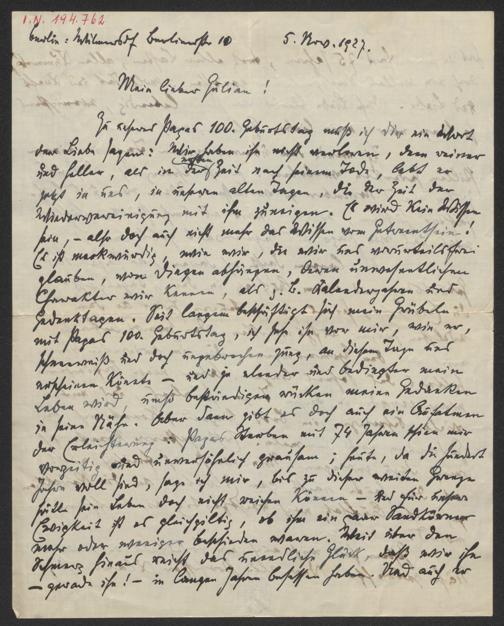 I.N. 194.762
Berlin-Wilmersdorf Berlinerstr 10 5. Nov. 1927.
Mein lieber Julian!
Zu unseres Papas 100. Geburtstag muß ich dir ein Wort
der Liebe sagen: Wir haben ihn nicht verloren, denn reiner
und heller, als in der ersten Zeit nach seinem Tode, lebt er
jetzt in uns, in unseren alten Tagen, die der Zeit der
Wiedervereinigung mit ihm zuneigen. Es wird kein Wissen
sein, – also doch auch nicht mehr das Wissen vom Getrenntsein!
Es ist merkwürdig, wie wir, die wir uns vorurteilsfrei
glauben, von Dingen abhängen, deren unwesentlichen
Charakter wir kennen: als z. B. Kalenderjahren und
Gedenktagen. Seit langem beschäftigt sich mein Grübeln
mit Papas 100. Geburtstag, ich sehe ihn vor mir, wie er,
schneeweiß und doch ungebrochen jung, an diesem Tage uns
erscheinen könnte – und je elender und bedingter mein
Leben wird, umso beständiger rücken meine Gedanken
in seine Nähe. Aber dann gibt es doch auch ein Aufatmen
der Erleichterung: Papas Sterben mit 74 Jahren schien mir
vorzeitig und unversöhnlich grausam; heute, da die hundert
Jahre voll sind, sage ich mir, bis zu dieser weiten Grenze
hätte sein Leben doch nicht reichen können – und für unsere
Ewigkeit ist es gleichgiltig, ob ihm ein paar Sandkörner
mehr oder weniger beschieden waren. Weit über den
Schmerz hinaus reicht das unendliche Glück, daß wir ihn
– gerade ihn! – in langen Jahren besessen haben. Und auch er